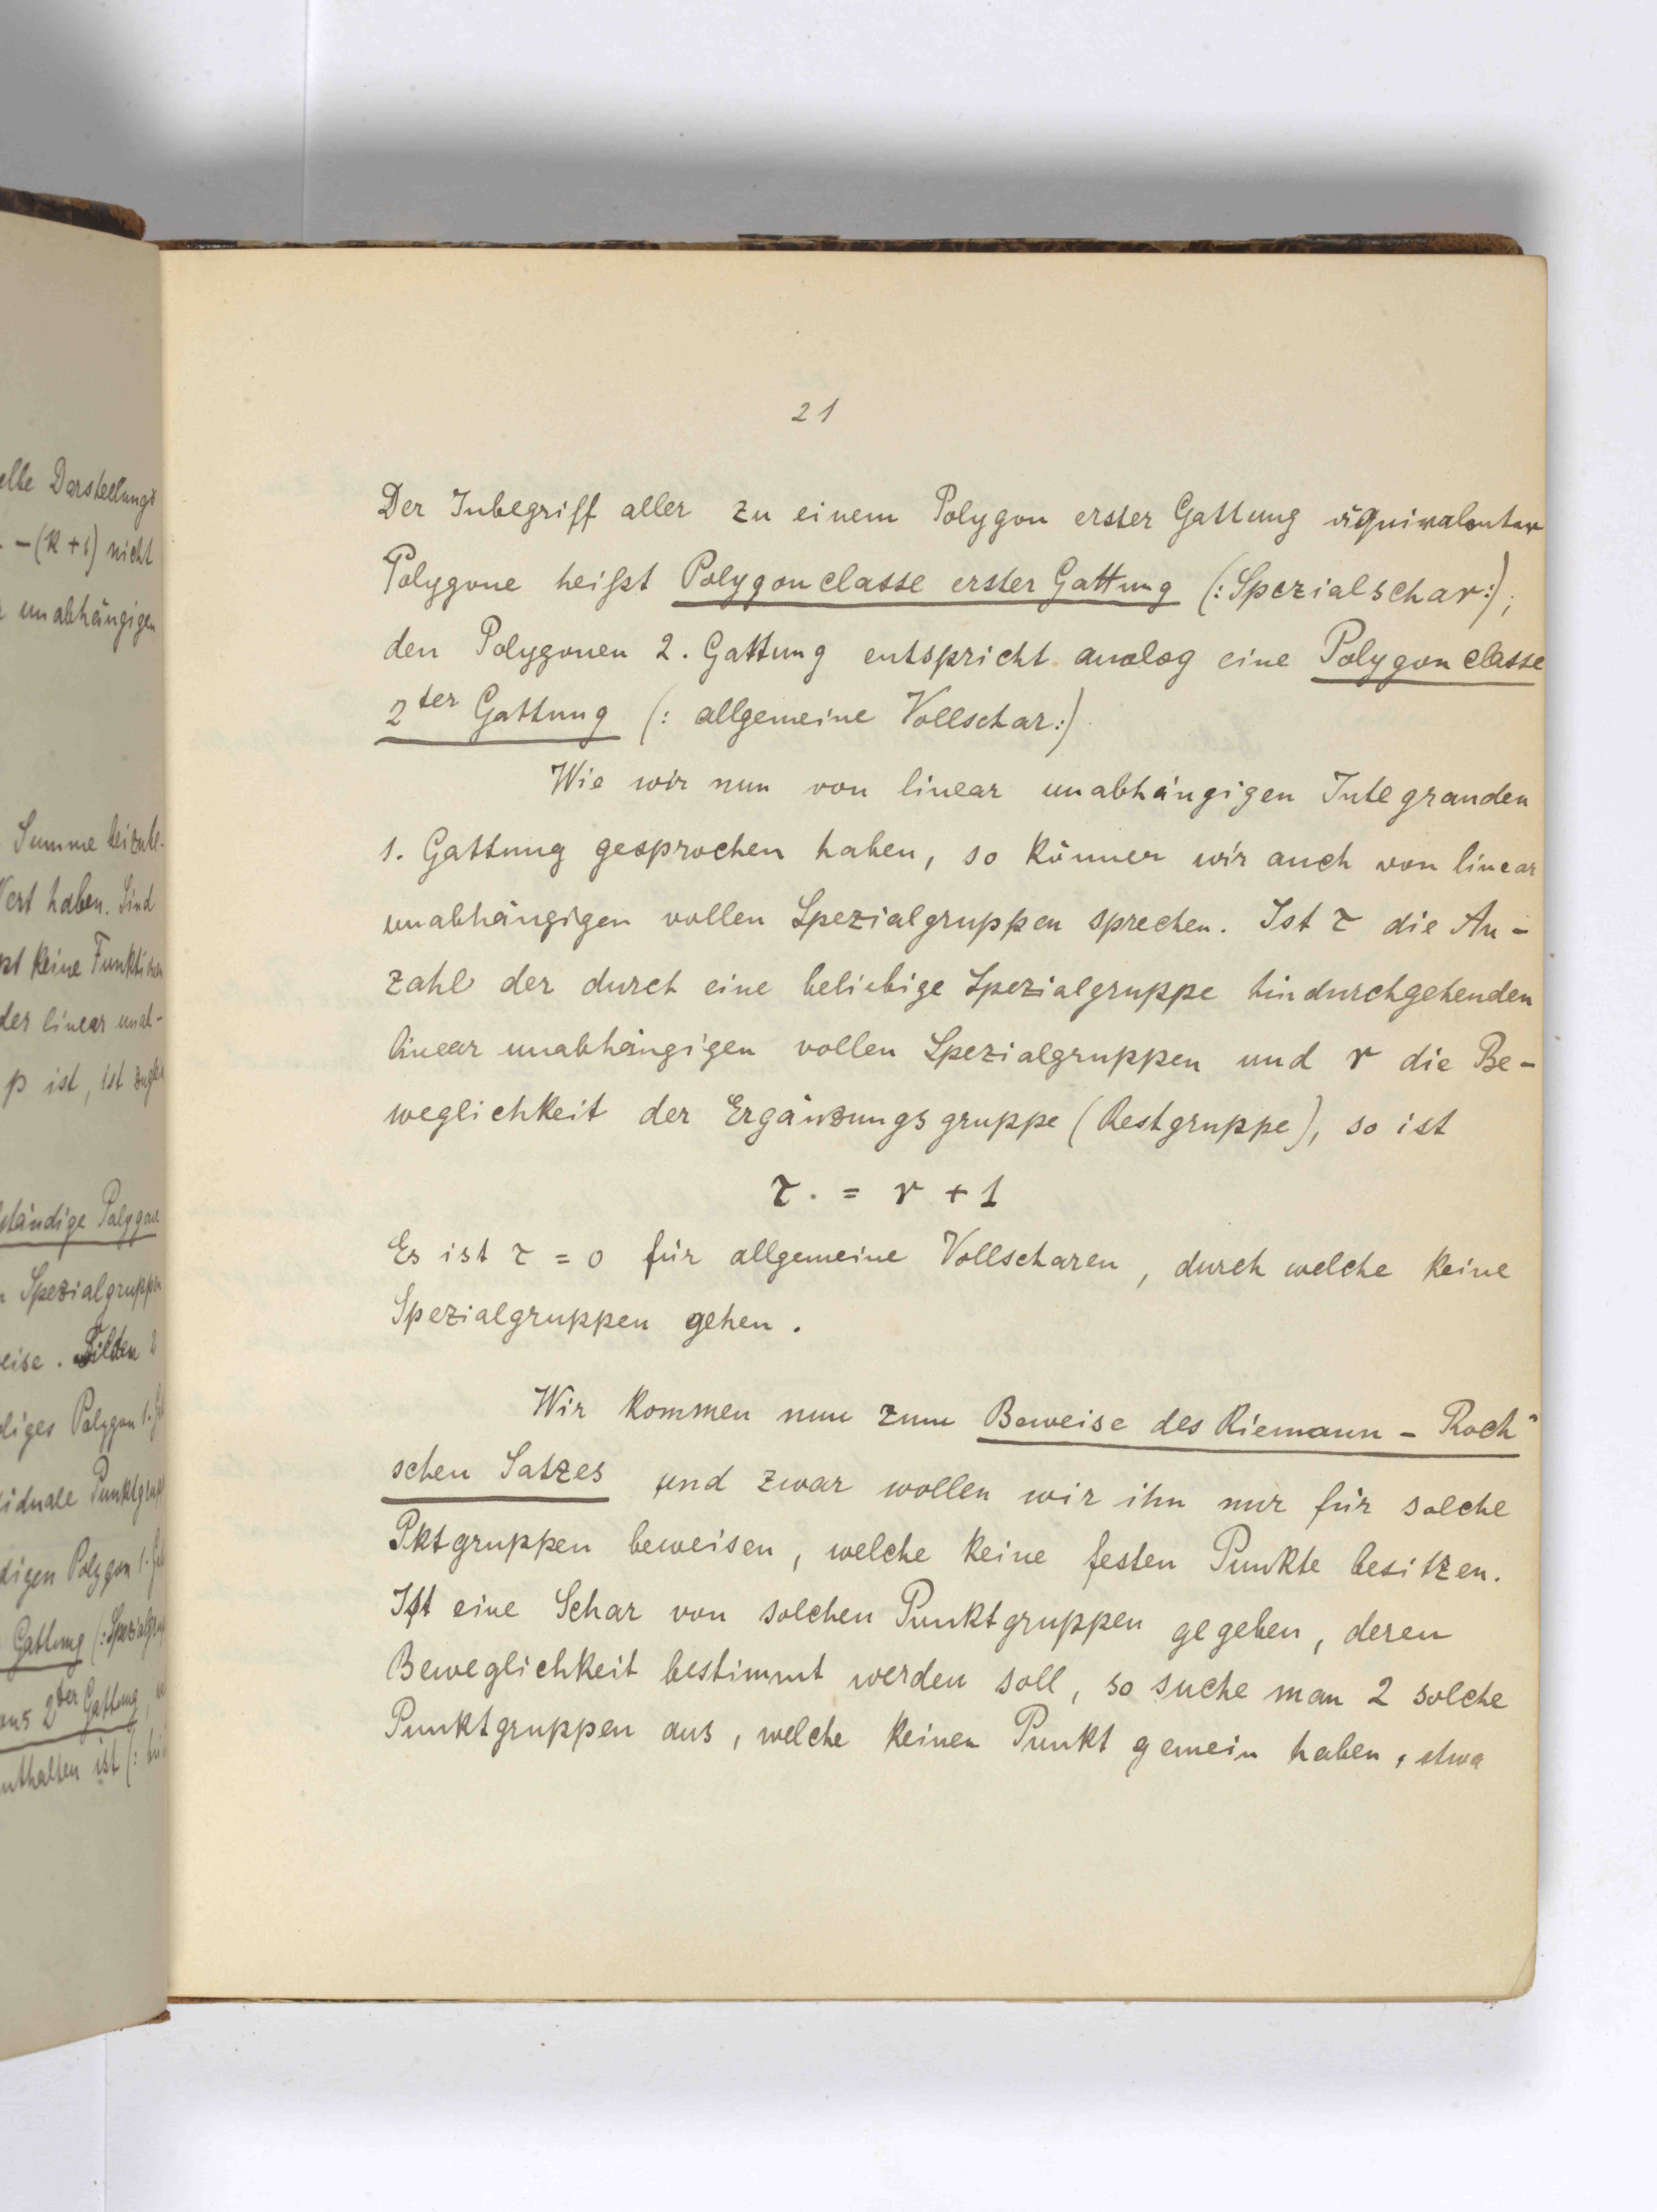 elbe Darstellungs
- (k+1) nicht
unabhängigen
Summe
Wert haben. Sind
keine Funktionen
der linear unab-
p ist, ist
ständige Polygone
Spezialgruppen
eise. Bilden 2
Polygon 1.
iduale Punktgrup
digen Polygon 1.
Gattung (: Spezialgrup
2ter Gattung
enthalten ist (:
21
Der Inbegriff aller zu einem Polygon erster Gattung äquivalenter
Polygone heißt Polygonclasse erster Gattung (: Spezialschar :);
den Polygonen 2. Gattung entspricht analog eine Polygonclasse
2ter Gattung (: allgemeine Vollschar :)
Wie wir nun von linear unabhängigen Integranden
1. Gattung gesprochen haben, so können wir auch von linear
unabhängigen vollen Spezialgruppen sprechen. Ist τ die An-
zahl der durch eine beliebige Spezialgruppe hindurchgehenden
linear unabhängigen vollen Spezialgruppen und r die Be-
weglichkeit der Ergänzungsgruppe (Restgruppe), so ist
τ = r + 1
Es ist τ = 0 für allgemeine Vollscharen, durch welche keine
Spezialgruppen gehen.
Wir kommen nun zum Beweise des Riemann - Roch"
schen Satzes und zwar wollen wir ihn nur für solche
Pktgruppen beweisen, welche keine festen Punkte besitzen.
Ist eine Schar von solchen Punktgruppen gegeben, deren
Beweglichkeit bestimmt werden soll, so suche man 2 solche
Punktgruppen aus, welche keinen Punkt gemein haben, etwa